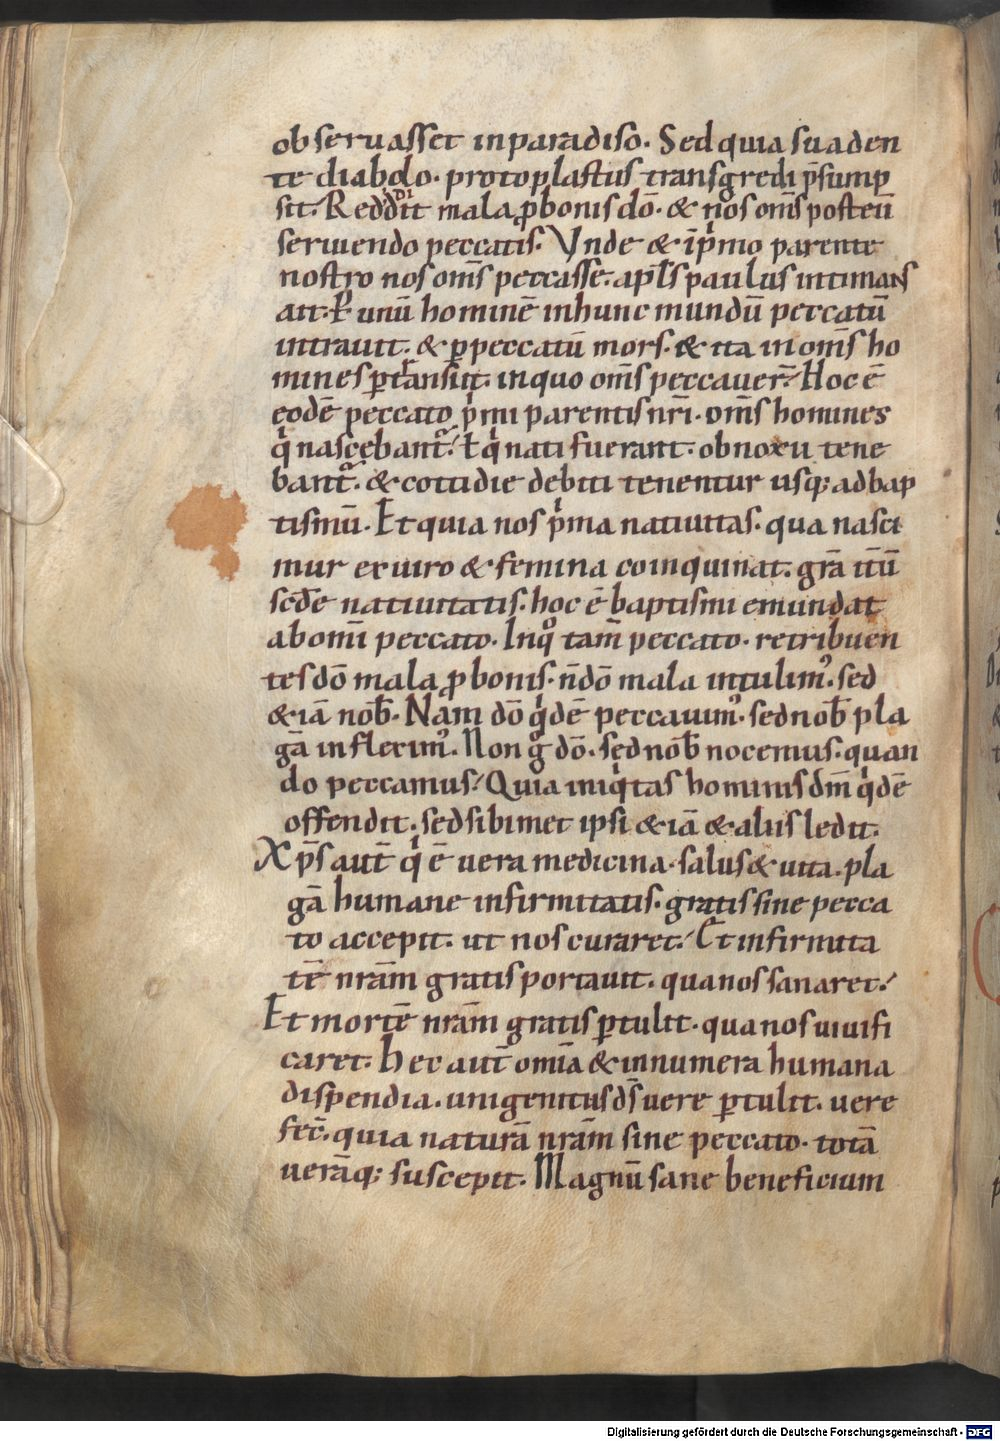 obseruasset inparadiso. Sed quia suaden
te diabolo. protoplastus transgredi p̄sump
sit. Reddit mala ꝓbonis dō. & nos om̄s posteū
seruiendo peccatis. Vnde & īpͥmo parente
nostro nos om̄s peccasse. apl̄s paulus intimans
ait. P̲ unū hominē inhunc mundū peccatū
intrauit. & ꝑpeccatū mors. & ita in om̄s ho
mines ꝑtransiit. inquo om̄s peccauer̄. Hoc ē
eodē peccato pͥmi parentis nr̄i. om̄s homines
qͥ nascebant᷑. ł qͥ nati fuerant. obnoxii tene
bant᷑. & cottidie debiti tenentur usq; adbap
tismū. Et quia nos pͥma natiuitas. qua nasci
mur exuiro & femina coinquinat. grā itū
scd̄e natiuitatis. hoc ē baptismi emundat
abomī peccato. Inqͦ tam̄ peccato. retribuen
tes dō mala ꝓbonis. n̄dō mala intulimꝰ. sed
& iā nob̄. Nam dō qͥdē peccauimꝰ. sed nob̄ pla
gā infleximꝰ. Non gͦ dō. sed nob̄ nocemus. quan
do peccamus. Quia iniqͥtas hominis dm̄ qͥdē
offendit. sed sibimet ipsi & iā & aliis ledit.
Xp̄s aut̄ qͥ ē uera medicina. salus & uita. pla
gā humane infirmitatis. gratis sine pecca
to accepit. ut nos curaret. Et infirmita
tē nrām gratis portauit. qua nos sanaret.
Et mortē nrām gratis ꝑtulit. qua nos uiuifi
caret. Hec aut̄ omīa & innumera humana
dispendia. unigenitus ds̄ uere ꝑtulit. uere
fec̄. quia naturā nrām sine peccato. totā
uerāq; suscepit. Magnū sane beneficium
Digitalisierung gefördert durch die Deutsche Forschungsgemeinschaft - DFG